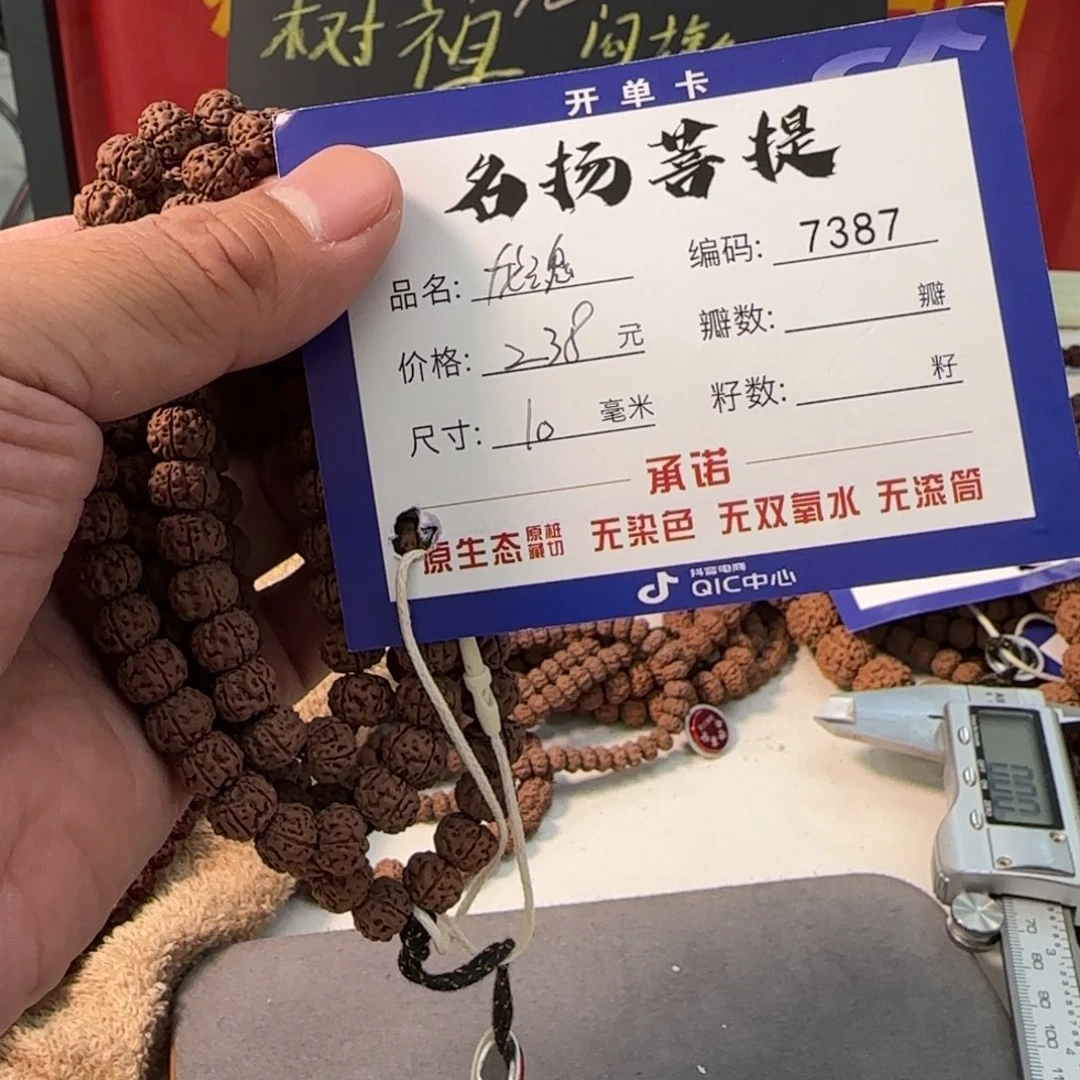 树祖
开单卡
名扬菩提
品名: 龙魂 编码: 7387
价格: 238 元 瓣数: 瓣
尺寸: 10 毫米 籽数: 籽
承诺
原生态 原桩藏切 无染色 无双氧水 无滚筒
抖音电商 QIC中心